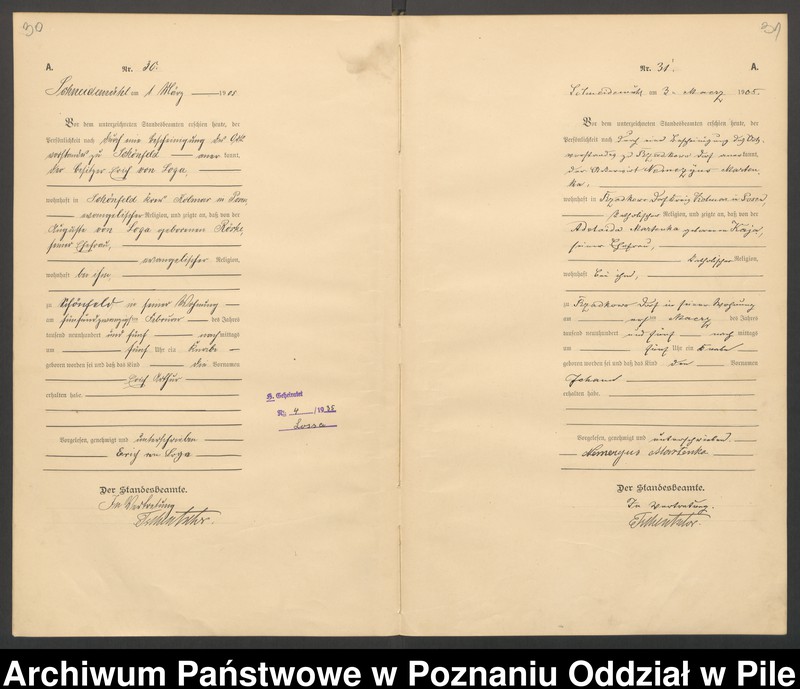 30
A.
Nr. 30.
Schneidemühl am 1 März 1905
Vor dem unterzeichneten Standesbeamten erschien heute, der
Persönlichkeit nach durch eine Bescheinigung des Orts-
vorstandes zu Schönfeld anerkannt,
der Besitzer von Loga,
wohnhaft in Schönfeld Kreis Kolmar in Posen,
evangelischer Religion, und zeigte an, daß von der
Auguste von Loga geborenen
seiner Ehefrau,
evangelischer Religion,
wohnhaft bei ihm,
zu Schönfeld in seiner Wohnung
am fünfundzwanzigsten Februar des Jahres
tausend neunhundert und fünf nachmittags
um fünf Uhr ein Knabe
geboren worden sei und daß das Kind die Vornamen
Arthur
erhalten habe.
Vorgelesen, genehmigt und unterschrieben
von Loga
Der Standesbeamte.
In Vertretung
Geheiratet
Nr. 4 /1935
31
Nr. 31.
A.
Schneidemühl am 3. Maerz 1905.
Vor dem unterzeichneten Standesbeamten erschien heute, der
Persönlichkeit nach durch eine Bescheinigung des Orts-
vorstandes zu Dorf anerkannt,
der Marten-
ka,
wohnhaft in Dorf Kreis Kolmar in Posen,
katholischer Religion, und zeigte an, daß von der
Martenka geborenen
seiner Ehefrau,
katholischer Religion,
wohnhaft bei ihm,
zu Dorf in seiner Wohnung
am ersten Maerz des Jahres
tausend neunhundert und fünf nachmittags
um fünf Uhr ein Knabe
geboren worden sei und daß das Kind den Vornamen
Johann
erhalten habe.
Vorgelesen, genehmigt und unterschrieben.
Martenka
Der Standesbeamte.
In Vertretung.
Archiwum Państwowe w Poznaniu Oddział w Pile